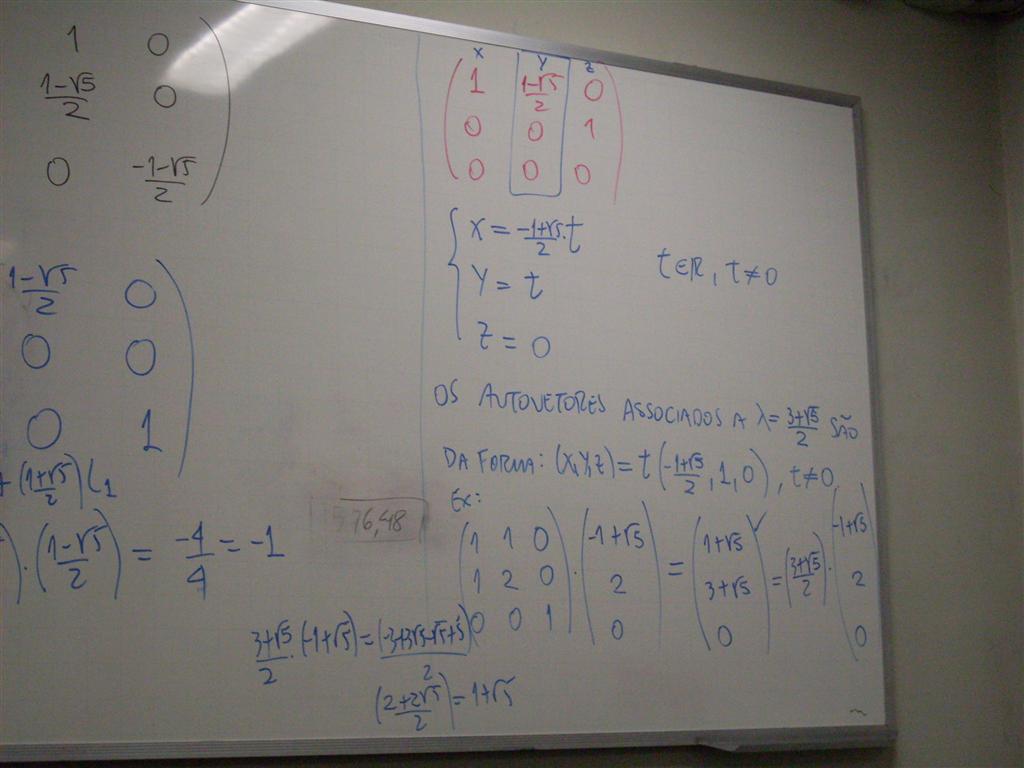 1 0
1-√5/2 0
0 -1-√5/2
1-√5/2 0
0 0
0 1
+ (1+√5/2) L1
) · (1-√5/2) = -4/4 = -1
x y z
1 1-√5/2 0
0 0 1
0 0 0
x = -1+√5/2 · t
y = t
z = 0
t ∈ R, t ≠ 0
OS AUTOVETORES ASSOCIADOS A λ = 3+√5/2 SÃO
DA FORMA: (x,y,z) = t (-1+√5/2, 1, 0), t ≠ 0.
EX:
(1 1 0) · (-1+√5) = (1+√5) ✓ = (3+√5/2) · (-1+√5)
(1 2 0) (2) (3+√5) (2)
(0 0 1) (0) (0) (0)
3+√5/2 · (-1+√5) = (-3+3√5-√5+5)/2
(2+2√5/2) = 1+√5
576,48